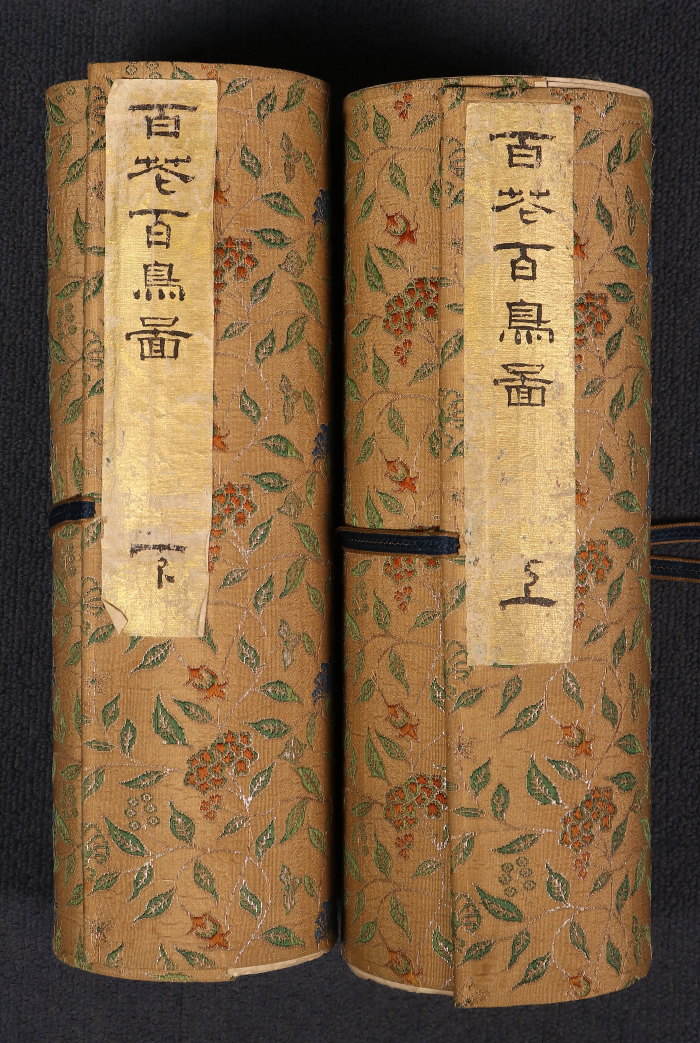 百花百鳥啚 上
百花百鳥啚 下